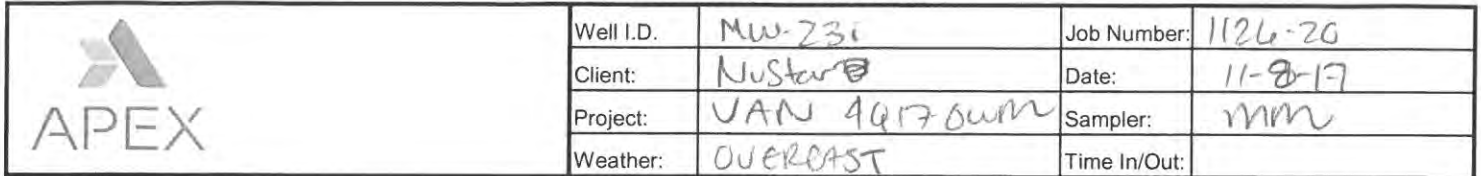 APEX
Well I.D. MW-23i Job Number: 1126-20
Client: NuStar Date: 11-8-17
Project: VAN 4Q17 GWM Sampler: MM
Weather: OVERCAST Time In/Out: